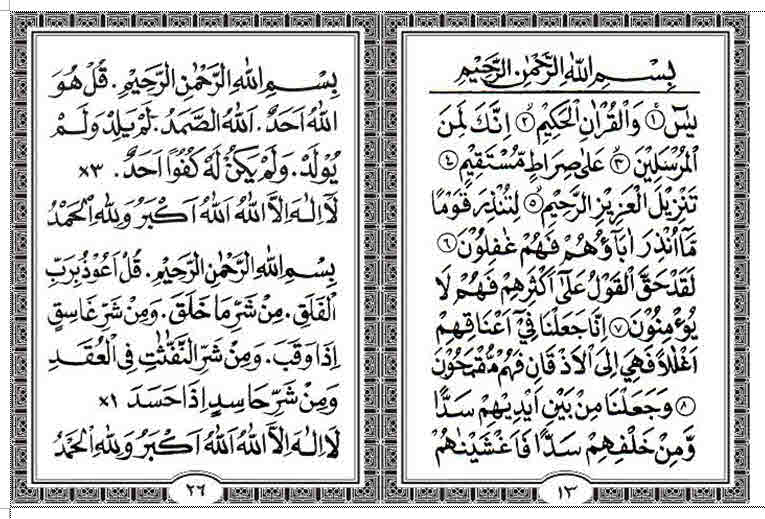 بِسْمِ اللهِ الرَّحْمٰنِ الرَّحِيْمِ
يٰسٓ ﴿١﴾ وَالْقُرْاٰنِ الْحَكِيْمِ ﴿٢﴾ اِنَّكَ لَمِنَ
الْمُرْسَلِيْنَ ﴿٣﴾ عَلٰى صِرَاطٍ مُّسْتَقِيْمٍ ﴿٤﴾
تَنْزِيْلَ الْعَزِيْزِ الرَّحِيْمِ ﴿٥﴾ لِتُنْذِرَ قَوْمًا
مَّٓا اُنْذِرَ اٰبَآؤُهُمْ فَهُمْ غٰفِلُوْنَ ﴿٦﴾
لَقَدْ حَقَّ الْقَوْلُ عَلٰٓى اَكْثَرِهِمْ فَهُمْ لَا
يُؤْمِنُوْنَ ﴿٧﴾ اِنَّا جَعَلْنَا فِيْٓ اَعْنَاقِهِمْ
اَغْلٰلًا فَهِيَ اِلَى الْاَذْقَانِ فَهُمْ مُّقْمَحُوْنَ
﴿٨﴾ وَجَعَلْنَا مِنْ بَيْنِ اَيْدِيْهِمْ سَدًّا
وَّمِنْ خَلْفِهِمْ سَدًّا فَاَغْشَيْنٰهُمْ
١٣
بِسْمِ اللهِ الرَّحْمٰنِ الرَّحِيْمِ. قُلْ هُوَ
اللهُ اَحَدٌ. اَللهُ الصَّمَدُ. لَمْ يَلِدْ وَلَمْ
يُوْلَدْ. وَلَمْ يَكُنْ لَهُ كُفُوًا اَحَدٌ. ×٣
لَآ اِلٰهَ اِلَّا اللهُ اَللهُ اَكْبَرُ وَلِلّٰهِ الْحَمْدُ
بِسْمِ اللهِ الرَّحْمٰنِ الرَّحِيْمِ. قُلْ اَعُوْذُ بِرَبِّ
الْفَلَقِ. مِنْ شَرِّ مَا خَلَقَ. وَمِنْ شَرِّ غَاسِقٍ
اِذَا وَقَبَ. وَمِنْ شَرِّ النَّفّٰثٰتِ فِى الْعُقَدِ
وَمِنْ شَرِّ حَاسِدٍ اِذَا حَسَدَ ×١
لَآ اِلٰهَ اِلَّا اللهُ اَللهُ اَكْبَرُ وَلِلّٰهِ الْحَمْدُ
٢٦